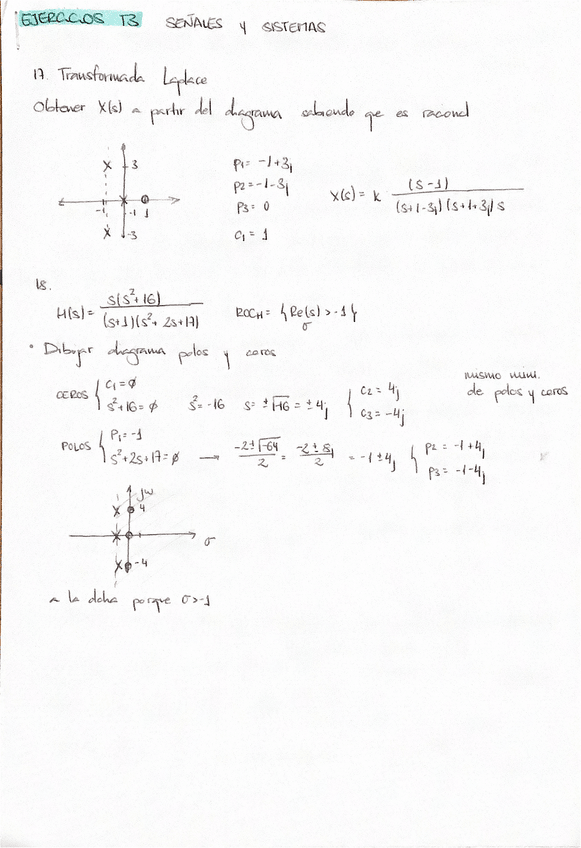 EJERCICIOS T3 SEÑALES Y SISTEMAS
17. Transformada Laplace
Obtener X(s) a partir del diagrama sabiendo que es racional
3
-1 -1 1
-3
P1= -1+3j
P2= -1-3j
P3= 0
C1= 1
X(s)= k (s-1) / (s+1-3j)(s+1+3j) s
18.
H(s)= s(s²+16) / (s+1)(s²+2s+17) ROCH= {Re(s)>-1}
σ
• Dibujar diagrama polos y ceros
mismo num.
de polos y ceros
CEROS { C1=0
s²+16=0 s²=-16 s=±√-16=±4j { C2=4j
C3=-4j
POLOS { P1=-1
s²+2s+17=0 → -2±√-64 / 2 = -2±8j / 2 = -1±4j { P2=-1+4j
P3=-1-4j
jω
4
σ
-4
a la dcha porque σ>-1